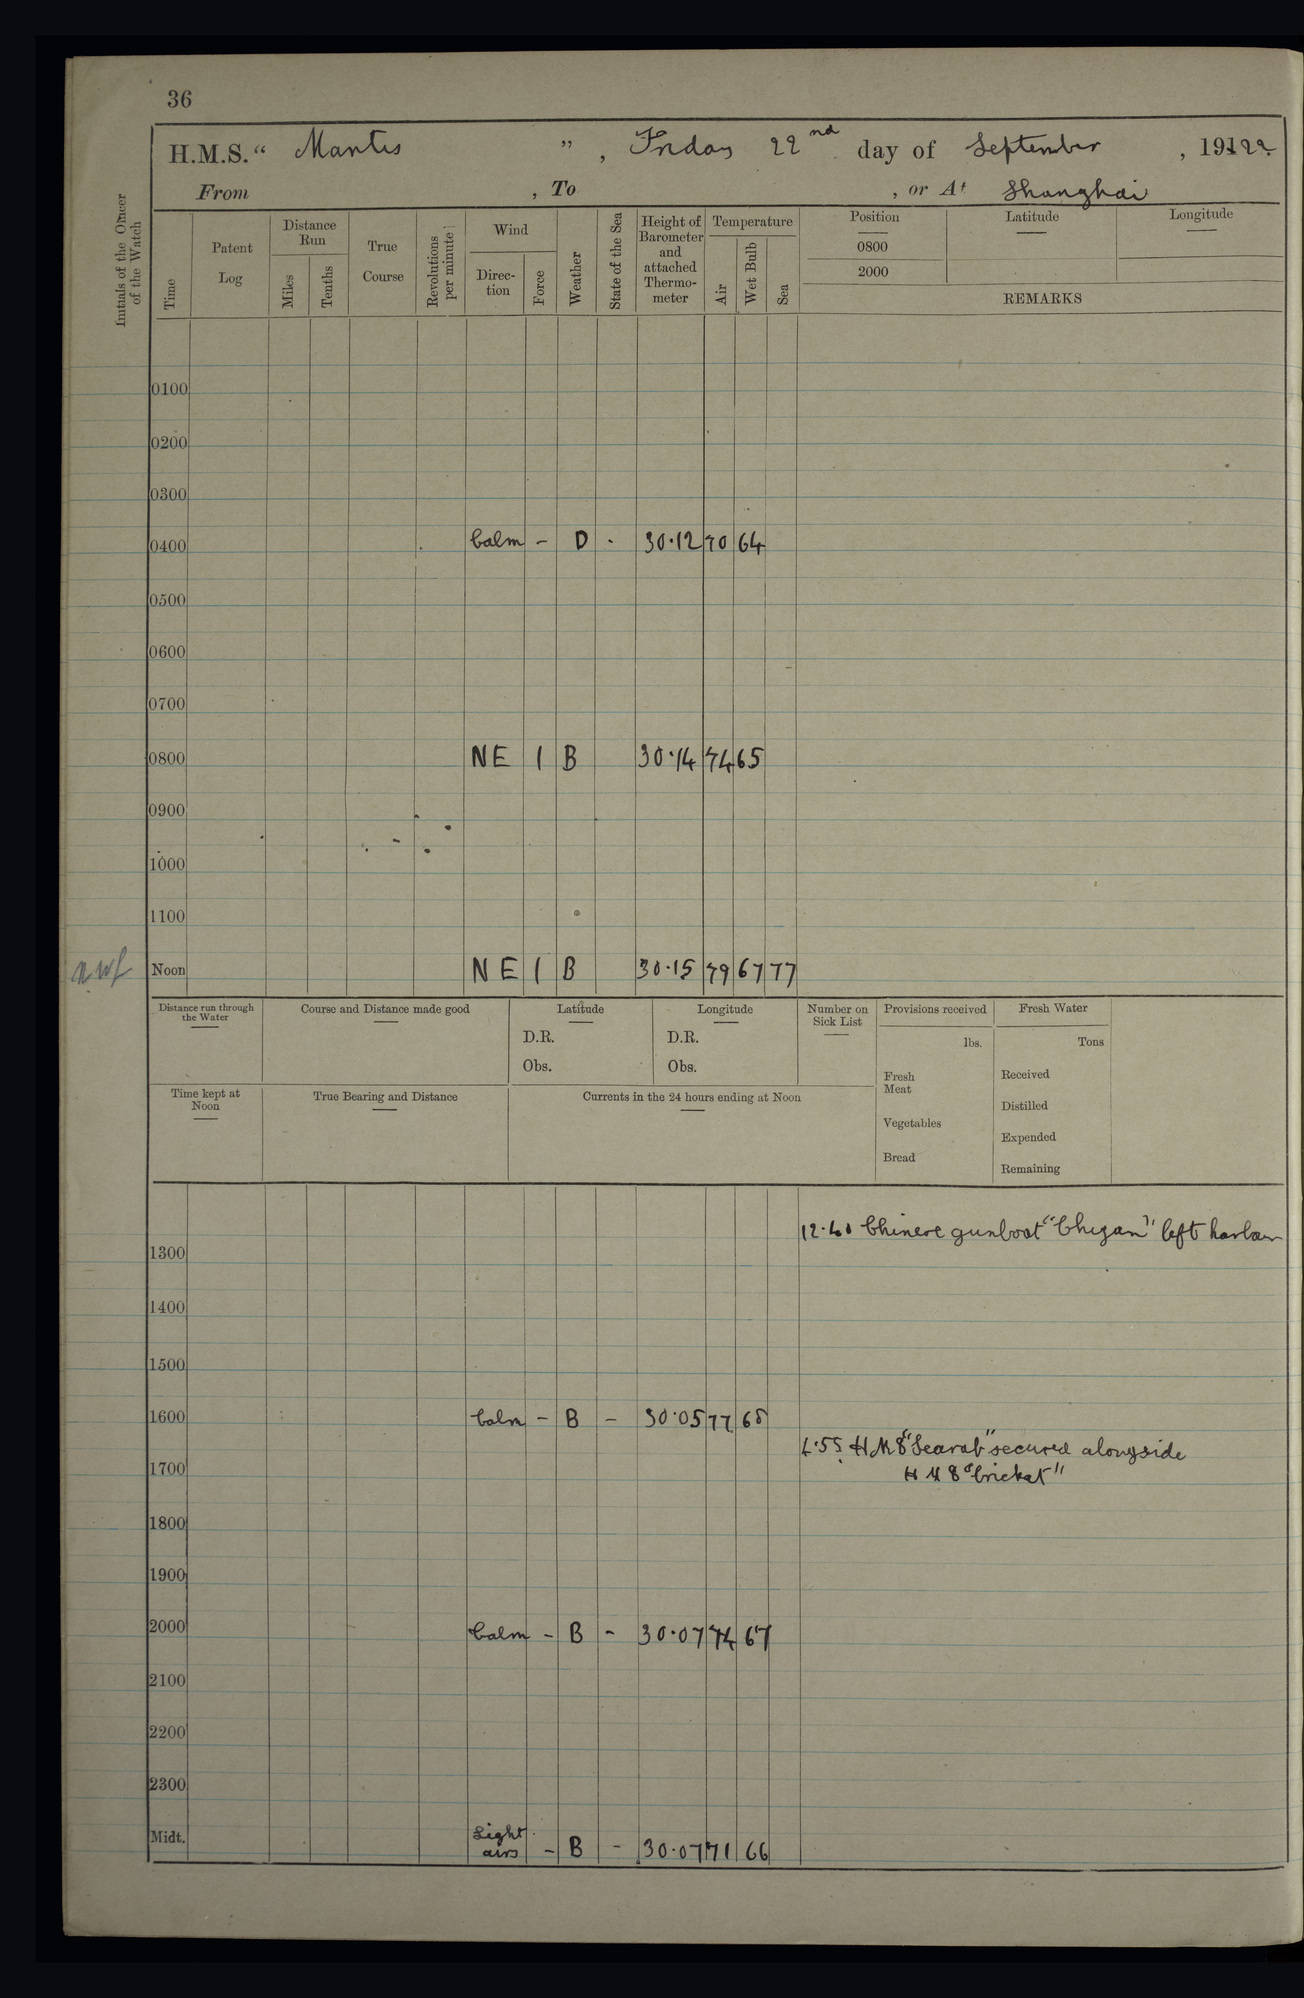 36
H.M.S. “ Mantis ”, Friday 22nd day of September, 1922
From , To , or At Shanghai
Initials of the Officer of the Watch
Time
Patent Log
Distance Run
Miles
Tenths
True Course
Revolutions per minute
Wind
Direc-tion
Force
Weather
State of the Sea
Height of Barometer and attached Thermo-meter
Temperature
Air
Wet Bulb
Sea
Position
0800
2000
Latitude
Longitude
REMARKS
0100
0200
0300
0400 Calm - D . 30.12 70 64
0500
0600
0700
0800 NE 1 B 30.14 74 65
0900
1000
1100
Noon NE 1 B 30.15 79 67 77
Distance run through the Water
Course and Distance made good
Latitude
D.R.
Obs.
Longitude
D.R.
Obs.
Number on Sick List
Provisions received
lbs.
Fresh Meat
Vegetables
Bread
Fresh Water
Tons
Received
Distilled
Expended
Remaining
Time kept at Noon
True Bearing and Distance
Currents in the 24 hours ending at Noon
12.40 Chinese gunboat "Chuyan" left harbour
1300
1400
1500
1600 Calm - B - 30.05 77 68
4.55 HMS "Scarab" secured alongside
HMS "Cricket"
1700
1800
1900
2000 Calm - B - 30.07 74 67
2100
2200
2300
Midt. Light airs - B - 30.07 71 66